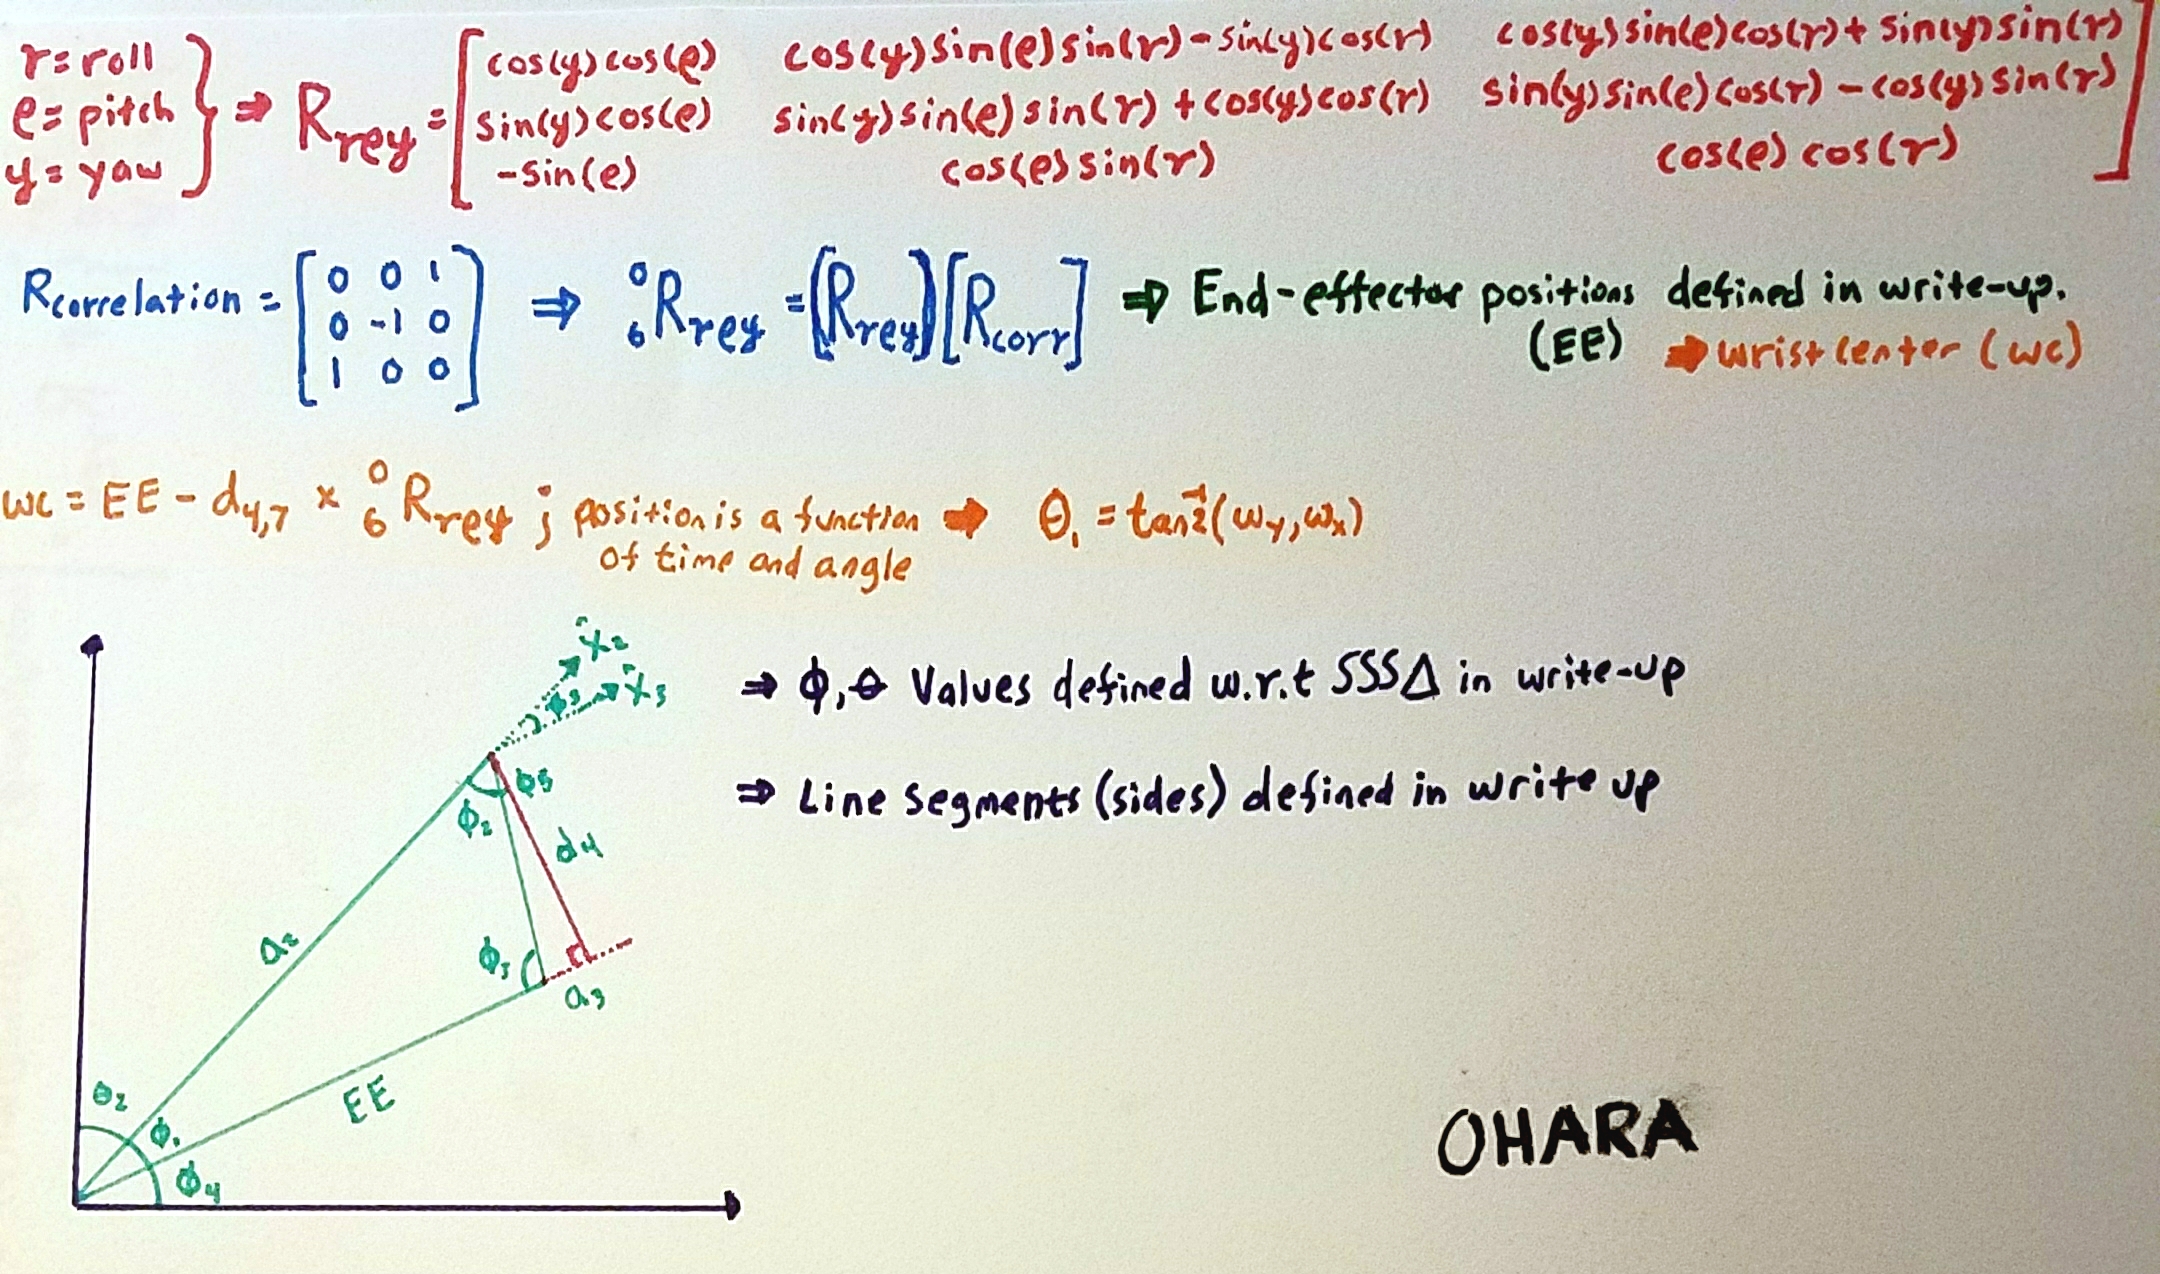 r = roll
e = pitch } ⇒ R_rey = [ cos(y)cos(e) cos(y)sin(e)sin(r) - sin(y)cos(r) cos(y)sin(e)cos(r) + sin(y)sin(r)
y = yaw sin(y)cos(e) sin(y)sin(e)sin(r) + cos(y)cos(r) sin(y)sin(e)cos(r) - cos(y)sin(r)
-sin(e) cos(e)sin(r) cos(e)cos(r) ]
Rcorrelation = [ 0 0 1
0 -1 0
1 0 0 ] ⇒ ⁰₆R_rey = [R_rey][R_corr] ⇒ End-effector positions defined in write-up.
(EE) ⇒ wrist center (wc)
wc = EE - d₄,₇ × ⁰₆R_rey ; position is a function ⇒ θ₁ = tan2⁻¹(wy, wx)
of time and angle
x̂₂
x̂₃
⇒ ϕ, θ Values defined w.r.t SSS△ in write-up
⇒ Line segments (sides) defined in write up
ϕ₅
ϕ₂
d₄
a₂
a₃
EE
θ₂
ϕ₁
ϕ₄
OHARA